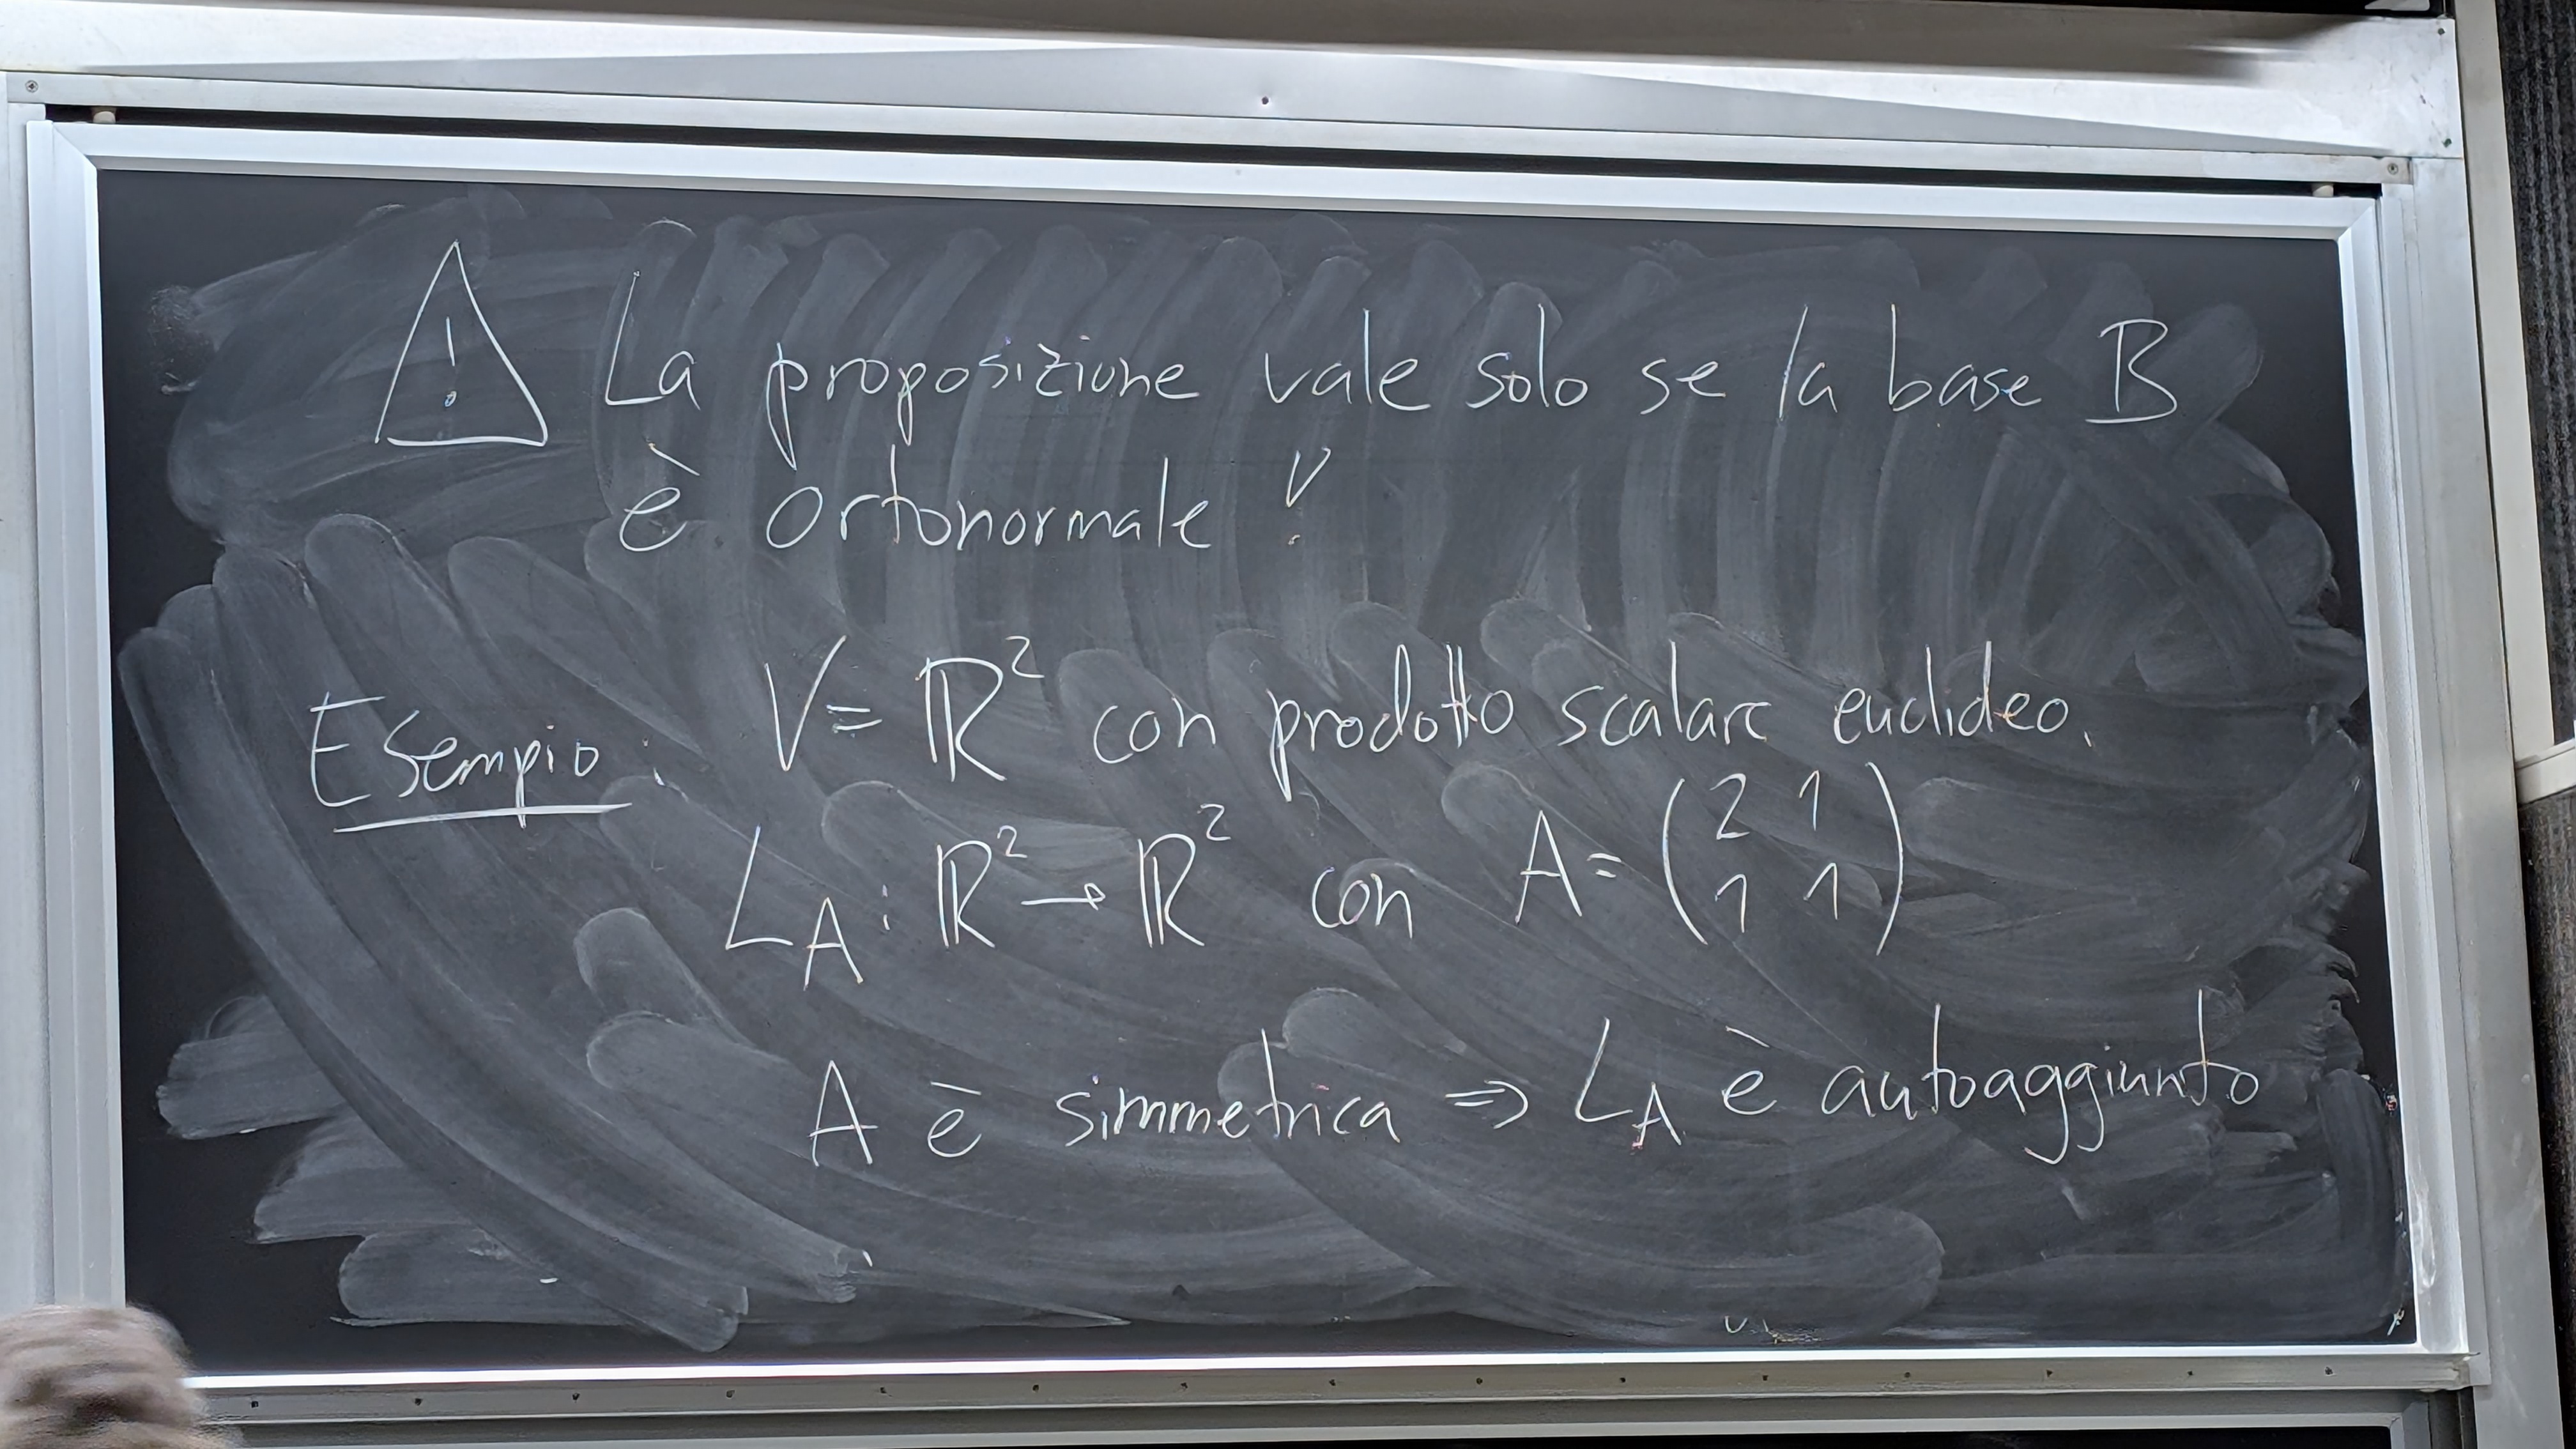 ⚠ La proposizione vale solo se la base B
è ortonormale !
Esempio: V = ℝ² con prodotto scalare euclideo.
L_A : ℝ² → ℝ² con A = (2 1
1 1)
A è simmetrica ⇒ L_A è autoaggiunto